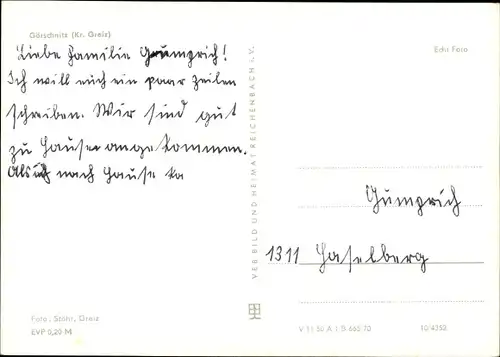 Görschnitz (Kr. Greiz)
Liebe Familie Gumprich!
Ich will euch ein paar Zeilen
schreiben. Wir sind gut
zu Hause angekommen.
Als ich nach Hause ka
Foto: Stöhr, Greiz
EVP 0,20 M
VEB BILD UND HEIMAT REICHENBACH i. V.
Echt Foto
Gumprich
1311 Haselberg
V 11 50 A 1 B 665 70
10/4353